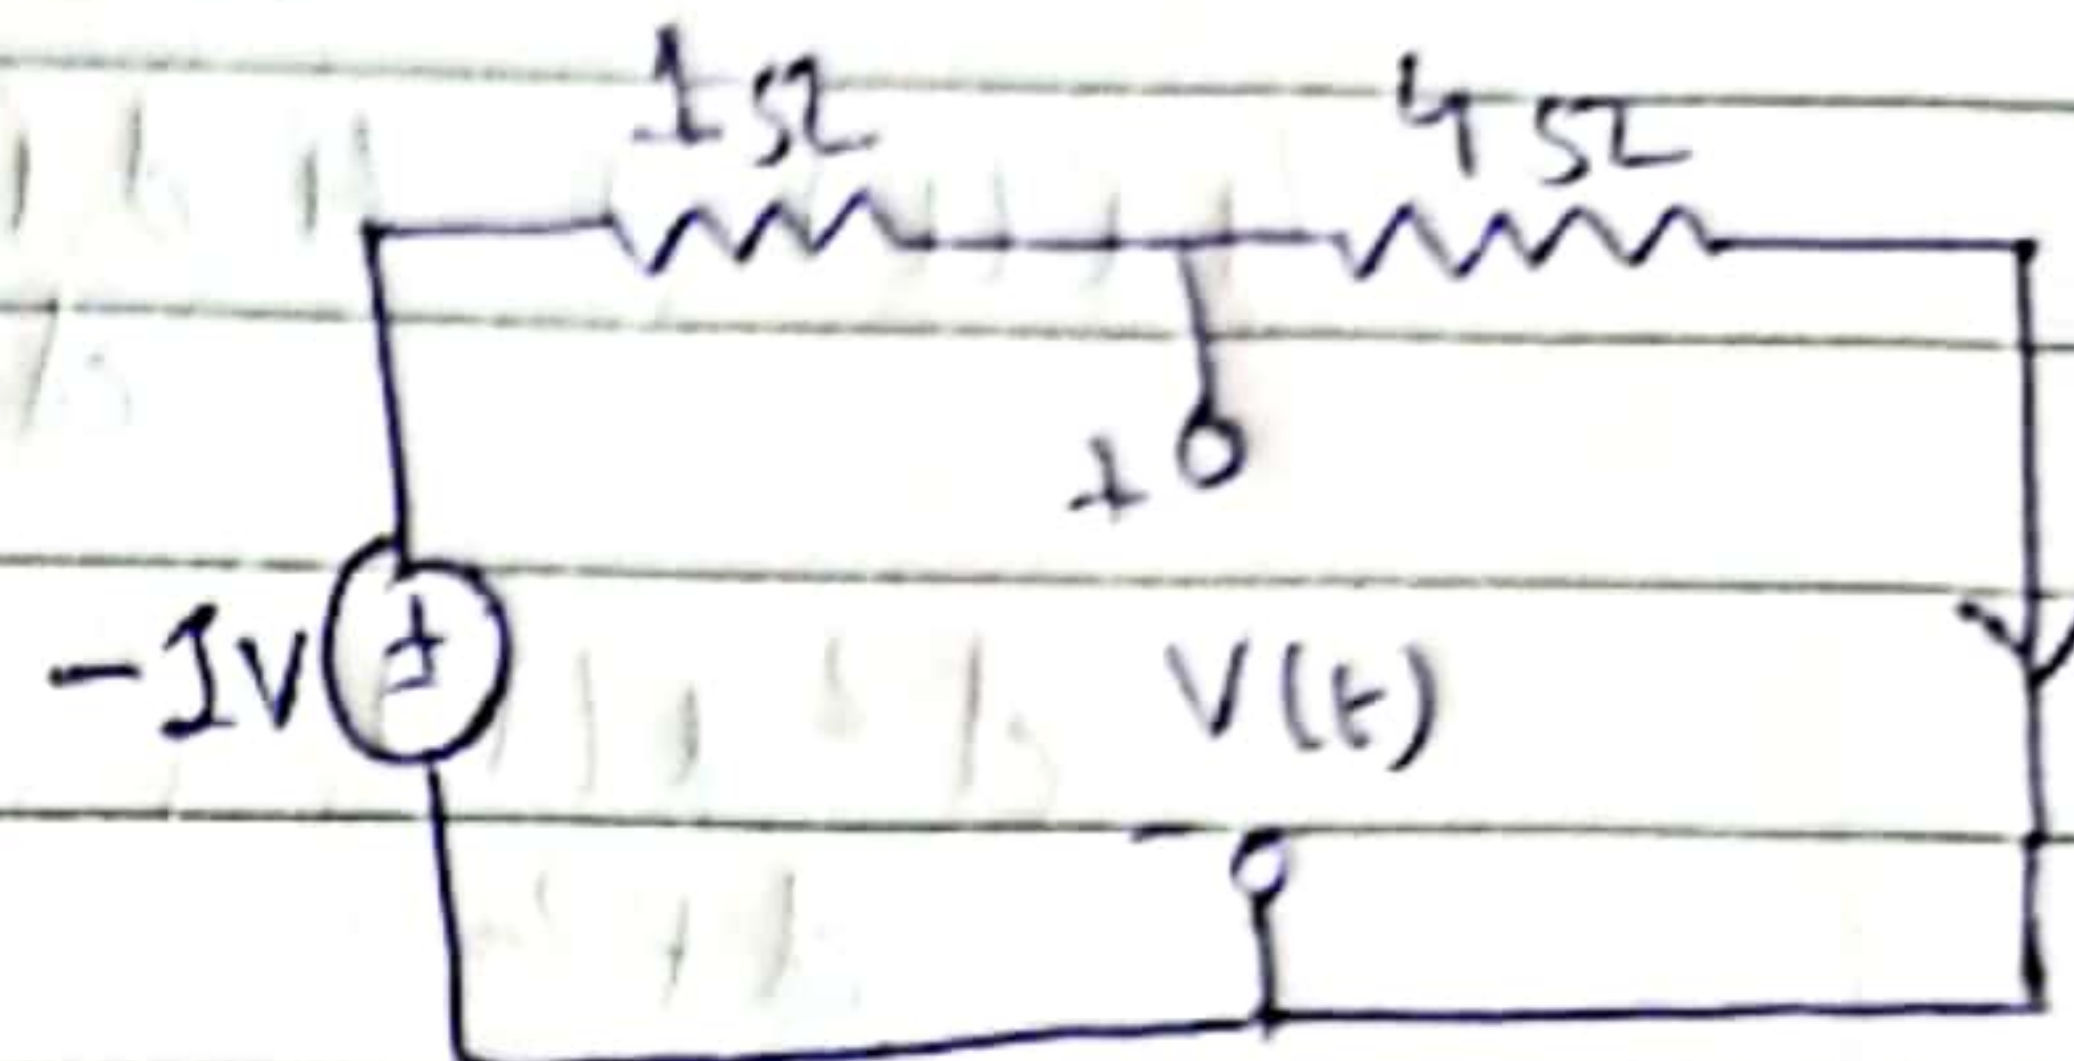 1Ω 4Ω
+
-1V ±
V(t)
-